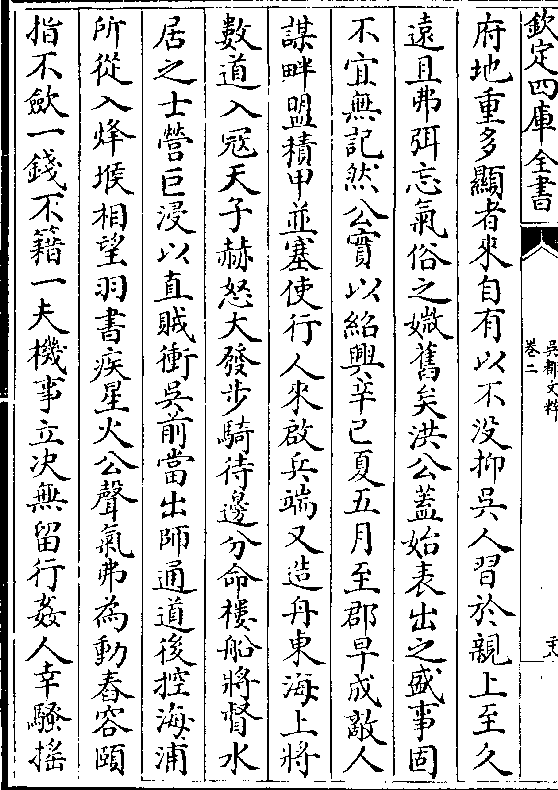 欽定四庫全書
吳都文粹
卷二
府地重多顯者來自有以不没抑吳人習於親上至久
遠且弗弭忘氣俗之媺舊矣洪公蓋始表出之盛事固
不宜無記然公實以紹興辛已夏五月至郡早成敵人
謀畔盟積甲並塞使行人來啟兵端又造舟東海上將
數道入冦天子赫怒大發步騎待邊分命樓船將督水
居之士營巨浸以直賊衝吳前當出師通道後控海浦
所從入烽堠相望羽書疾星火公聲氣弗為動舂容頤
指不歛一錢不籍一夫機事立决無留行姦人幸騷搖